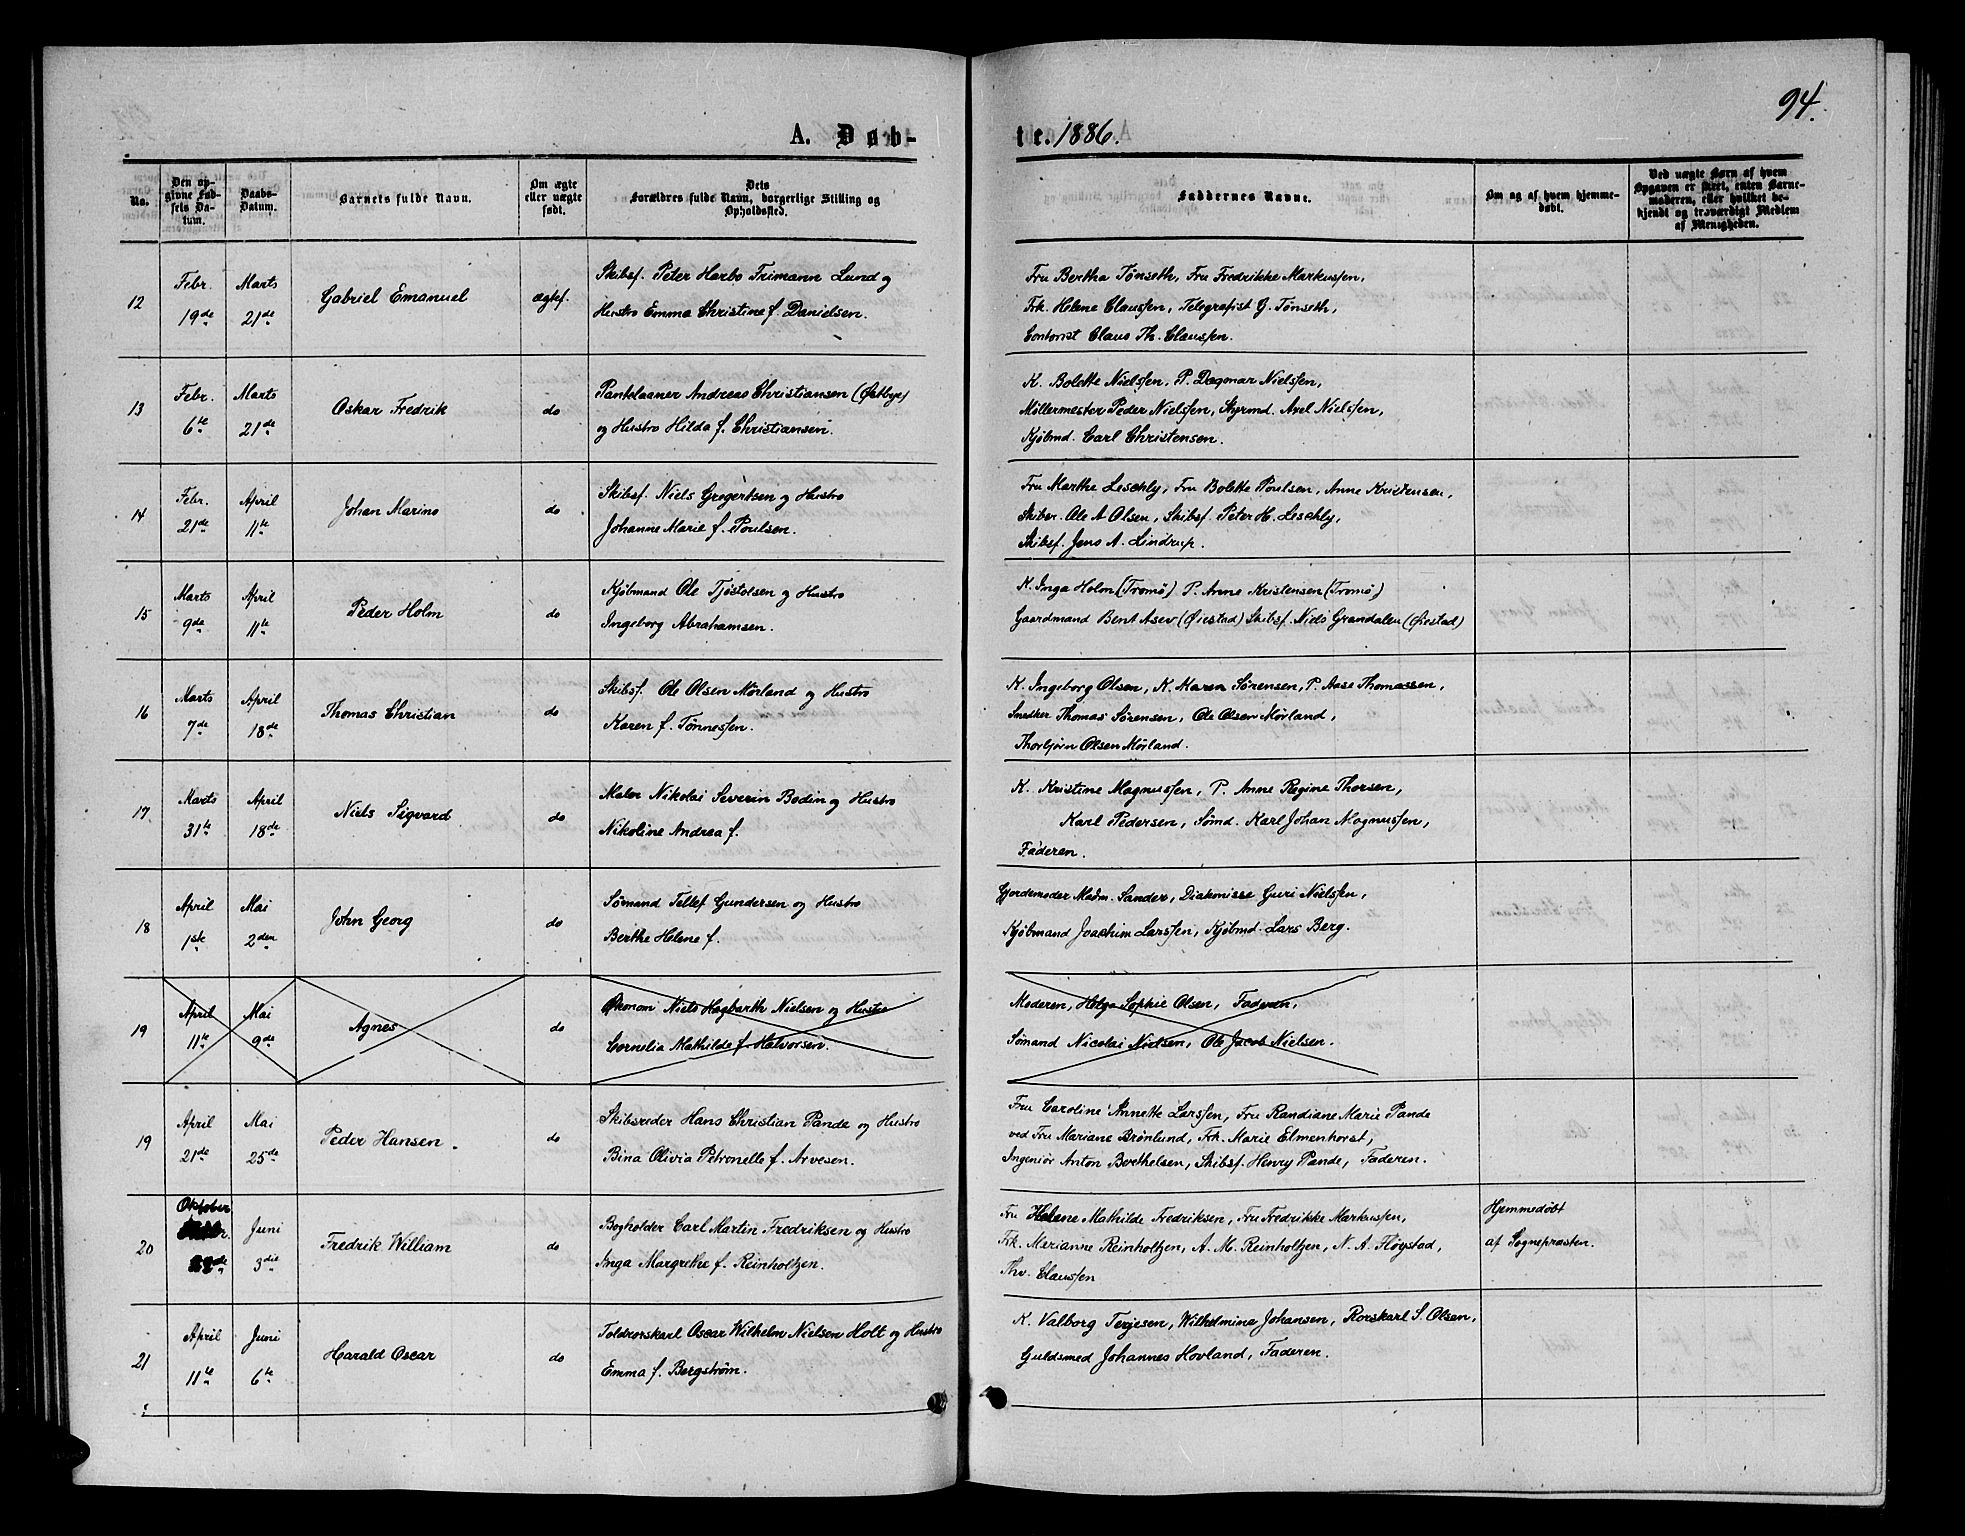 94.
A. Døb-
te. 1886.
No.
Den op-
givne Fød-
sels Da-
tum.
Daabs-
Datum.
Barnets fulde Navn.
Om ægte
eller uægte
født.
Dets
Forældres fulde Navn, borgerlige Stilling og
Opholdssted.
Faddernes Navne.
Om og af hvem hjemme-
døbt.
Ved uægte Børn af hvem
Opgaven er skeet, enten Barne-
moderen, eller hvilket be-
kjendt og troværdigt Medlem
af Menigheden.
12
Febr.
19de
Marts
21de
Gabriel Emanuel
ægtef.
Skibsf. Peter Harbo Frimann Lund og
Hustro Emma Christine f. Danielsen.
Fru Bertha Tønseth, Fru Fredrikke Markussen,
Frk. Helene Claussen, Telegrafist G. Tønseth,
Contorist Claus Th. Claussen.
13
Febr.
6te
Marts
21de
Oskar Fredrik
do
Pantelaaner Andreas Christiansen (Østbye)
og Hustro Hilda f. Christiansen.
K. Bolette Nielssen, P. Dagmar Nielssen,
Møllermester Peder Nielssen, Styrmd. Axel Nielssen,
Kjøbmd. Carl Christensen.
14
Febr.
21de
April
11te
Johan Marino
do
Skibsf. Niels Gregertsen og Hustro
Johanne Marie f. Poulsen.
Fru Marthe Leschly, Fru Bolette Poulsen, Anne Kristensen,
Skiber. Ole A Olsen, Skibsf. Peter H. Leschly,
Skibsf. Jens A. Lindrup.
15
Marts
9de
April
11te
Peder Holm
do
Kjøbmand Ole Tjøstolsen og Hustro
Ingeborg Abrahamsen.
K. Inga Holm (Tromø) P. Anne Kristensen (Tromø)
Gaardmand Bent Asev (Øiestad) Skibsf. Niels Grandalen (Øiestad)
16
Marts
7de
April
18de
Thomas Christian
do
Skibsf. Ole Olsen Mørland og Hustro
Karen f. Tønnessen.
K. Ingeborg Olsen, K. Maren Sørensen, P. Aase Thomassen,
Snedker Thomas Sørensen, Ole Olsen Mørland,
Thorbjørn Olsen Mørland.
17
Marts
31te
April
18de
Niels Sigvard
do
Maler Nikolai Severin Bodin og Hustro
Nikoline Andrea f.
K. Kristine Magnussen, P. Anne Regine Thorsen,
Karl Pedersen, Sømd. Karl Johan Magnussen,
Faderen.
18
April
1ste
Mai
2den
John Georg
do
Sømand Tellef Gundersen og Hustro
Berthe Helene f.
Gjordemoder Madm. Sander, Diakonisse Guri Nielssen,
Kjøbmand Joachim Larssen, Kjøbmd. Lars Berg.
19
April
11te
Mai
9de
Agnes
do
Økonom Niels Hagbarth Nielsen og Hustro
Cornelia Mathilde f. Halvorsen.
Moderen, Helga Sophie Olsen, Faderen,
Sømand Nicolai Nielsen, Ole Jacob Nielsen.
19
April
21de
Mai
25de
Peder Hansen.
do
Skibsreder Hans Christian Pande og Hustro
Bina Olivia Petronelle f. Arvesen.
Fru Caroline Annette Larssen, Fru Randiane Marie Pande
ved Fru Mariane Brønlund, Frk. Marie Elmenhorst,
Ingeniør Anton Berthelsen, Skibsf. Henry Pande, Faderen.
20
Oktober
Juni
3die
Fredrik William
do
Bogholder Carl Martin Fredriksen og Hustro
Inga Margrethe f. Reinholtzen.
Fru Helene Mathilde Fredriksen, Fru Fredrikke Markussen,
Frk. Marianne Reinholtzen, A. M. Reinholtzen, N. A. Fløystad,
Thv. Claussen
Hjemmedøbt
af Sognepræsten.
21
April
11te
Juni
6te
Harald Oscar
do
Toldrorskarl Oscar Wilhelm Nielsen Holt og Hustro
Emma f. Bergstrøm.
K. Valborg Terjesen, Wilhelmina Johansen, Rorskarl S. Olsen,
Guldsmed Johannes Hovland, Faderen.